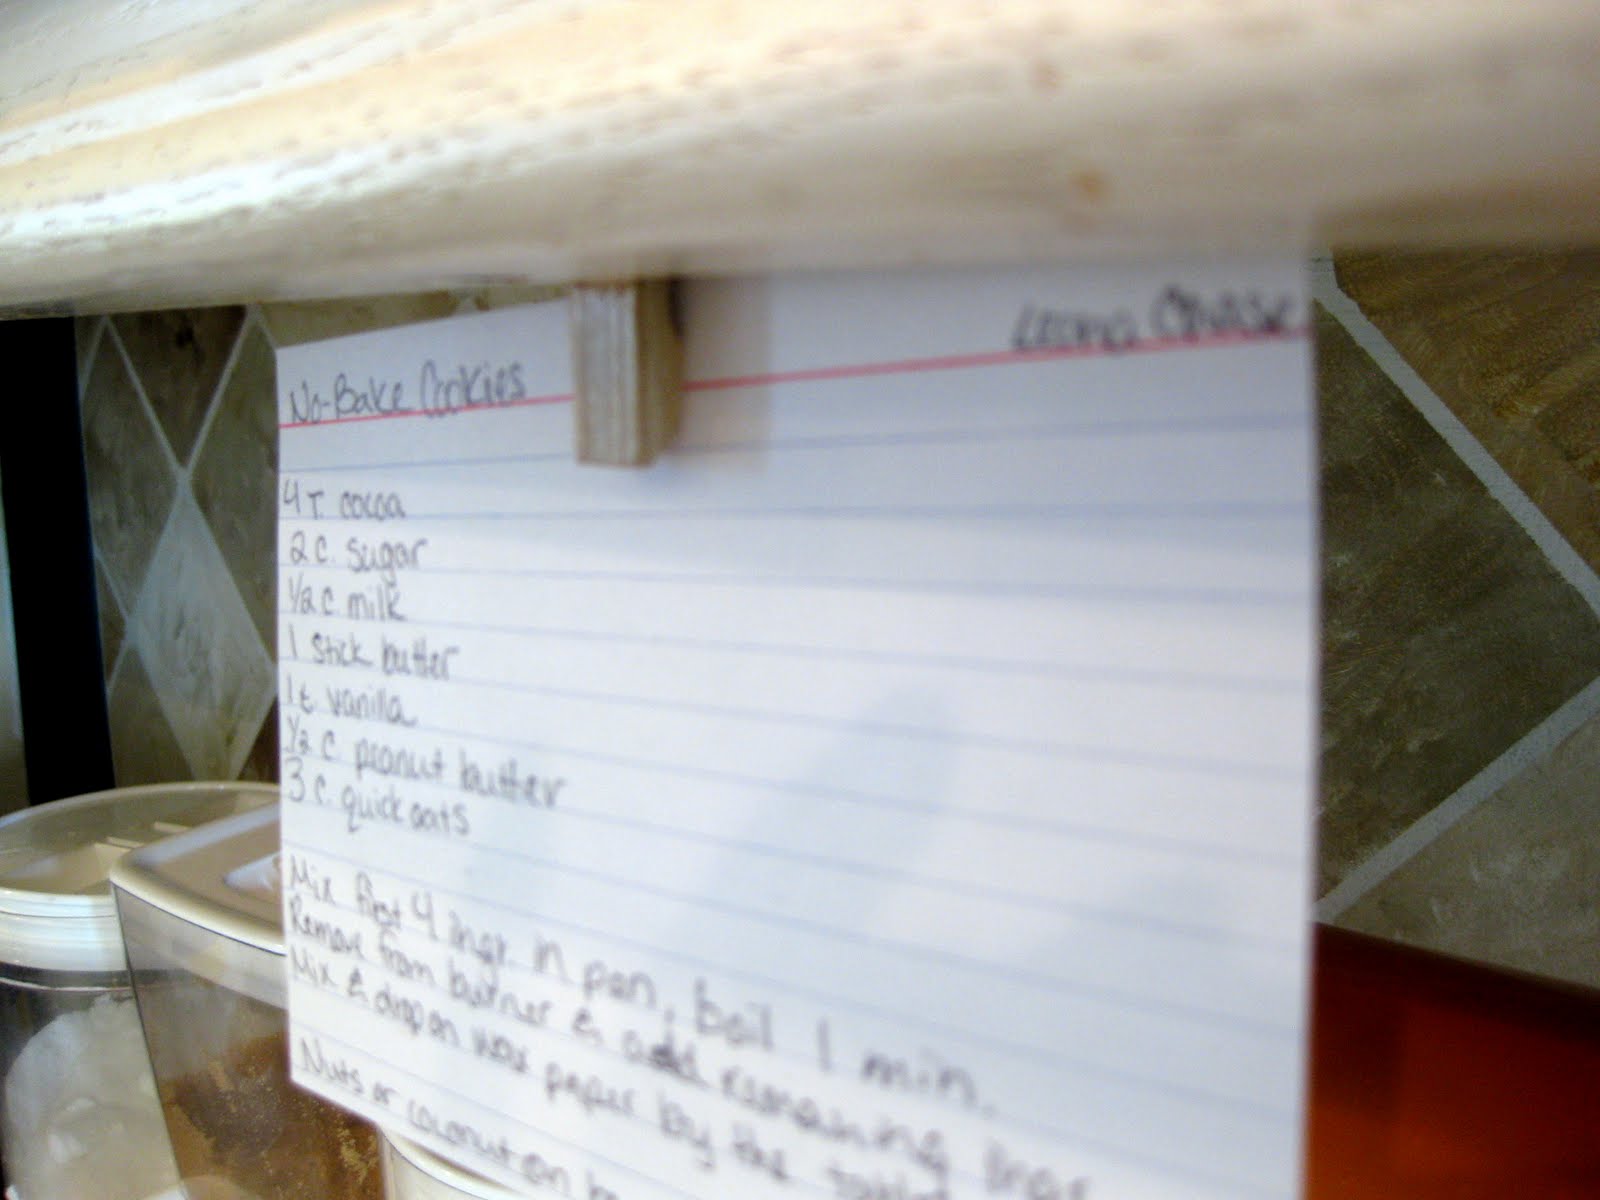 No-Bake Cookies
4 T. cocoa
2 c. sugar
1/2 c. milk
1 stick butter
1 t. vanilla
1/2 c. peanut butter
3 c. quick oats
Mix first 4 ingr. in pan, boil 1 min.
Remove from burner & add remaining ingr
Mix & drop on wax paper by the
Nuts or coconut